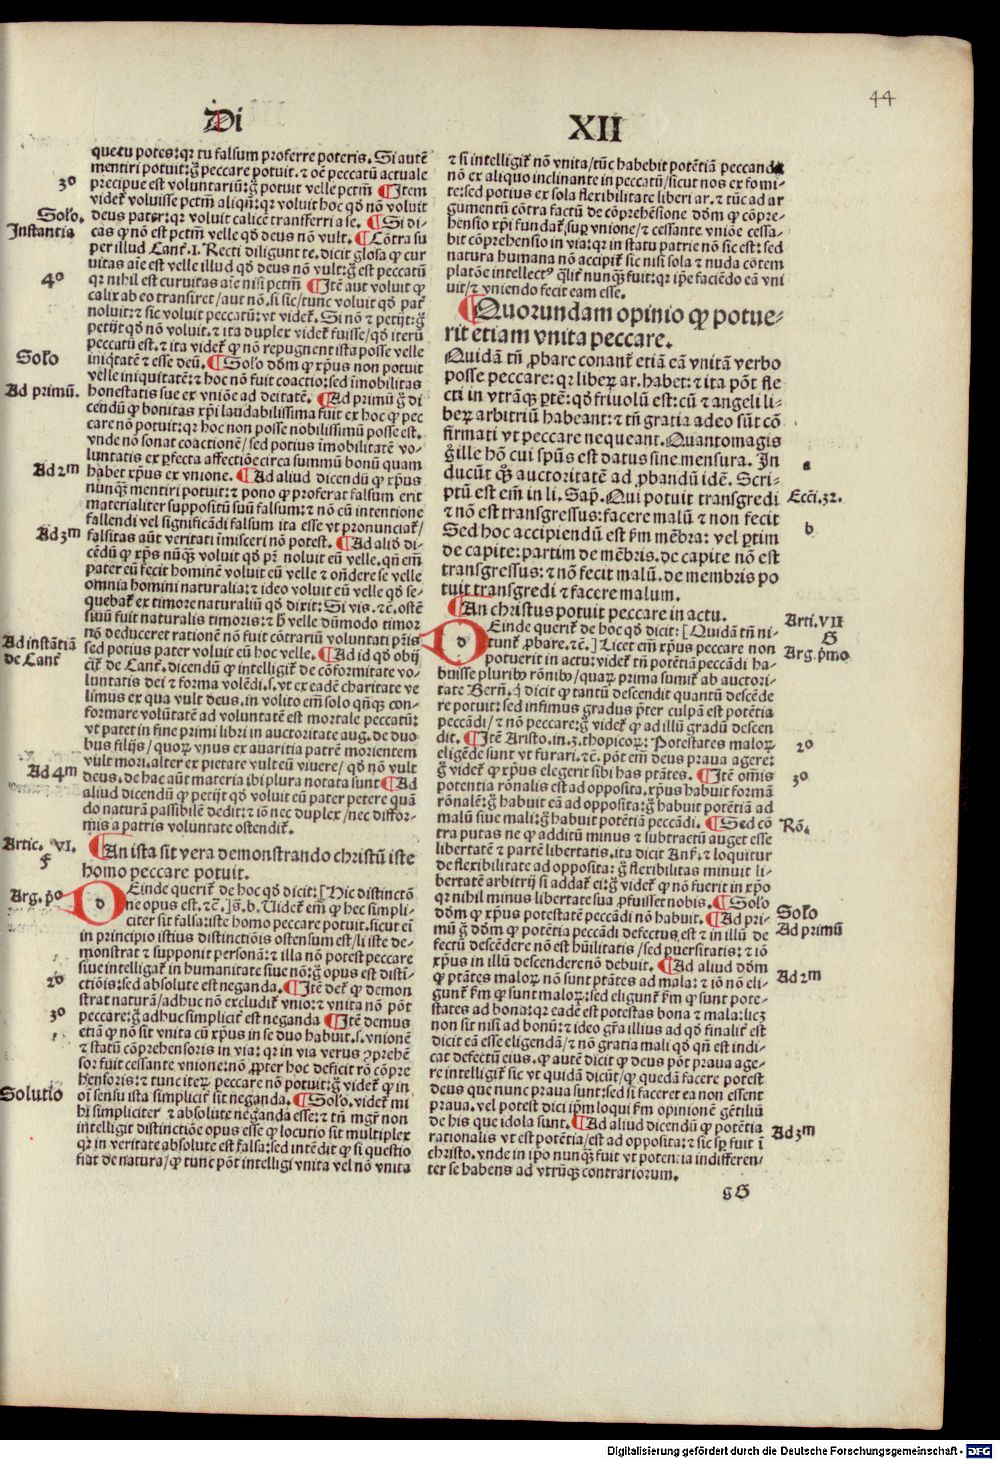 44
Di
XII
que tu potes: qꝛ tu falsum proferre poteris. Si autē
mentiri potuit: ḡ peccare potuit. ⁊ oē peccatū actuale
precipue est voluntariū: ḡ potuit velle pctm̄ ¶ Item
3º
videt̄ voluisse pctm̄ aliqñ: qꝛ voluit hoc qđ nō voluit
deus pater: qꝛ voluit calicē transferri a se. ¶ Si di-
Solo.
cas ꝙ nō est pctm̄ velle qđ deus nō vult. ¶ Cōtra su
Instantia
per illud Cant̄. 1. Recti diligunt te. dicit glosa ꝙ cur
uitas aīe est velle illud qđ deus nō vult: ḡ est peccatū
qꝛ nihil est curuitas aīe nisi pctm̄ ¶ Itē aut voluit ꝙ
4º
calix ab eo transiret / aut nō. si sic / tunc voluit qđ pat̄
noluit: ⁊ sic voluit peccatū: vt videt̄. Si nō ⁊ petijt: ḡ
petijt qđ nō voluit. ⁊ ita duplex videt̄ fuisse / qđ iterū
peccatū est. ⁊ ita videt̄ ꝙ nō repugnent ista posse velle
iniqtatē ⁊ esse deū. ¶ Solo dōm ꝙ xp̄us non potuit
Solo
velle iniquitatē: ⁊ hoc nō fuit coactio: sed īmobilitas
honestatis sue ex vniōe ad deitatē. ¶ Ad primū ḡ di
Ad primū.
cendū ꝙ bonitas xp̄i laudabilissima fuit ex hoc ꝙ pec
care nō potuit: qꝛ hoc non posse nobilissimū posse est.
vnde nō sonat coactionē / sed potius īmobilitatē vo-
luntatis ex ꝑfecta affectiōe circa summū bonū quam
habet xp̄us ex vnione. ¶ Ad aliud dicendū ꝙ xp̄us
Ad 2m
nūnqȝ mentiri potuit: ⁊ pono ꝙ proferat falsum erit
materialiter suppositū suū falsum: ⁊ nō cū intentione
fallendi vel significādi falsum ita esse vt pronunciat̄ /
falsitas aūt veritati īmisceri nō potest. ¶ Ad aliđ di-
Ad 3m
cēdū ꝙ xp̄s nūqȝ voluit qđ pr̄ noluit eū velle. qn̄ em̄
pater eū fecit hominē voluit eū velle ⁊ oñdere se velle
omnia homini naturalia: ⁊ ideo voluit eū velle qđ se-
quebat̄ ex timore naturaliū qđ dixit: Si vis. ⁊c̄. ostē
siuū fuit naturalis timoris: ⁊ h̄ velle dūmodo timor
nō deduceret rationē nō fuit cōtrariū voluntati pr̄is
sed potius pater voluit eū hoc velle. ¶ Ad id qđ obij
Ad instātiā
de Cant̄
cit̄ de Cant̄. dicendū ꝙ intelligit̄ de cōformitate vo-
luntatis dei ⁊ forma volēdi. s. vt ex eadē charitate ve
limus ex qua vult deus. in volito em̄ solo qn̄qȝ con-
formare volūtatē ad voluntatē est mortale peccatū:
vt patet in fine primi libri in auctoritate aug. de duo
bus filijs / quoꝝ vnus ex auaritia patrē morientem
vult mori. alter ex pietate vult eū viuere / qđ nō vult
deus. de hac aūt materia ibi plura notata sunt ¶ Ad
Ad 4m
aliud dicendū ꝙ petijt qđ voluit eū pater petere quā
do naturā passibilē dedit: ⁊ iō nec duplex / nec diffor-
mis a patris voluntate ostendit̄.
Artic. VI.
f
¶ An ista sit vera demonstrando christū iste
homo peccare potuit.
Arg. pº
Deinde querit̄ de hoc qđ dicit: [Hic distinctō
ne opus est. ⁊c̄.] 
citer sit falsa: iste homo peccare potuit. sicut ei
in principio istius distinctiōis ostensum est / li iste de-
monstrat ⁊ supponit personā: ⁊ illa nō potest peccare
siue intelligat̄ in humanitate siue nō: ḡ opus est disti-
ctiōis: sed absolute est neganda. ¶ Itē det̄ ꝙ demon
2º
strat naturā / adhuc nō excludit̄ vnio: ⁊ vnita nō pōt
peccare: ḡ adhuc simplicit̄ est neganda ¶ Itē demus
3º
etiā ꝙ nō sit vnita cū xp̄us in se duo habuit. s. vnionē
⁊ statū cōprehensoris in via: qꝛ in via verus ꝯprehē
sor fuit cessante vnione: nō ꝓpter hoc deficit rō cōpre
hensoris: ⁊ tunc iteꝝ peccare nō potuit: ḡ videt̄ ꝙ in
oī sensu ista simplicit̄ sit neganda. ¶ Solo. videt̄ mi
Solutio
hi simpliciter ⁊ absolute neganda esse: ⁊ tn̄ mgr̄ non
intelligit distinctiōe opus esse ꝙ locutio sit multiplex
qꝛ in veritate absolute est falsa: sed intēdit ꝙ si questio
fiat de natura / ꝙ tunc pōt intelligi vnita vel nō vnita
⁊ si intelligit̄ nō vnita / tūc habebit potētiā peccandi
nō ex aliquo inclinante in peccatū / sicut nos ex fomi-
te: sed potius ex sola flexibilitate liberi ar. ⁊ tūc ad ar
gumentū cōtra factū de cōprehēsione dōm ꝙ cōpre-
hensio xp̄i fundat̄ suꝑ vnione / ⁊ cessante vniōe cessa-
bit cōprehensio in via: qꝛ in statu patrie nō sic est: sed
natura humana nō accipit̄ sic nisi sola ⁊ nuda cōtem
platōe intellect9 qlit̄ nunqȝ fuit: qꝛ ip̄e faciēdo eā vni
uit / ⁊ vniendo fecit eam esse.
¶ Quorundam opinio ꝙ potue-
rit etiam vnita peccare.
Quidā tn̄ ꝓbare conant̄ etiā eā vnitā verbo
posse peccare: qꝛ libeꝝ ar. habet: ⁊ ita pōt fle
cti in vtrāqȝ ꝑtē: qđ friuolū est: cū ⁊ angeli li-
beꝝ arbitriū habeant: ⁊ tn̄ gratia adeo sūt cō
firmati vt peccare nequeant. Quantomagis
ḡ ille hō cui spūs est datus sine mensura. In
a
ducūt qȝ auctoritatē ad ꝓbandū idē. Scri-
ptū est em̄ in li. Sap̄. Qui potuit transgredi
Ecci. 32.
⁊ nō est transgressus: facere malū ⁊ non fecit
Sed hoc accipiendū est fm mēbra: vel ꝑtim
b
de capite: partim de mēbris. de capite nō est
transgressus: ⁊ nō fecit malū. de membris po
tuit transgredi ⁊ facere malum.
¶ An christus potuit peccare in actu.
Arti. VII
G
Deinde querit̄ de hoc qđ dicit: [Quidā tn̄ ni-
tunt̄ ꝓbare. ⁊c̄.] Licet em̄ xp̄us peccare non
Arg. p̄mo
potuerit in actu: videt̄ tn̄ potētiā peccādi ha-
buisse pluribꝰ rōnibꝰ / quaꝝ prima sumit̄ ab auctori-
tate Bern̄. q̇ dicit ꝙ tantū descendit quantū descēde
re potuit: sed infimus gradus p̄ter culpā est potētia
peccādi / ⁊ nō peccare: ḡ videt̄ ꝙ ad illū gradū descen
dit. ¶ Itē Aristo. in. 3. thopicoꝝ: Potestates maloꝝ
2º
eligēde sunt vt furari. ⁊c̄. pōt em̄ deus praua agere:
ḡ videt̄ ꝙ xp̄us elegerit sibi has ptātes. ¶ Itē om̄is
3º
potentia rōnalis est ad opposita. xp̄us habuit formā
rōnalē: ḡ habuit eā ad opposita: ḡ habuit potētiā ad
malū siue mali: ḡ habuit potētiā peccādi. ¶ Sed cō
Rō.
tra putas ne ꝙ additū minus ⁊ subtractū auget esse
libertatē ⁊ partē libertatis. ita dicit Ans̄. ⁊ loquitur
de flexibilitate ad opposita: ḡ flexibilitas minuit li-
bertatē arbitrij si addat̄ ei: ḡ videt̄ ꝙ nō fuerit in xp̄o
qꝛ nihil minus libertate sua ꝓfuisset nobis. ¶ Solo
Solo
dōm ꝙ xp̄us potestatē peccādi nō habuit. ¶ Ad pri-
Ad primū
mū ḡ dōm ꝙ potētia peccādi defectus est ⁊ in illū de
fectū descēdere nō est hūilitatis / sed ꝑuersitatis: ⁊ iō
xp̄us in illū descendere nō debuit. ¶ Ad aliud dōm
Ad 2m
ꝙ ptātes maloꝝ nō sunt ptātes ad mala: ⁊ iō nō eli-
gunt̄ fm ꝙ sunt maloꝝ: sed eligunt̄ fm ꝙ sunt pote-
states ad bona: qꝛ eadē est potestas bona ⁊ mala: licȝ
non sit nisi ad bonū: ⁊ ideo gr̄a illius ad qđ finalit̄ est
dicit eā esse eligendā / ⁊ nō gratia mali qđ qn̄ est indi-
cat defectū eius. ꝙ autē dicit ꝙ deus pōt praua age-
re intelligit̄ sic vt quidā dicūt / ꝙ quedā facere potest
deus que nunc praua sunt: sed si faceret ea non essent
praua. vel potest dici ip̄m loqui fm opinionē gētiliū
de his que idola sunt. ¶ Ad aliud dicendū ꝙ potētia
Ad 3m
rationalis vt est potētia / est ad opposita: ⁊ sic sꝑ fuit ī
christo. vnde in ip̄o nunqȝ fuit vt potentia indifferen-
ter se habens ad vtrūqȝ contrariorum.
g G
Digitalisierung gefördert durch die Deutsche Forschungsgemeinschaft - DFG